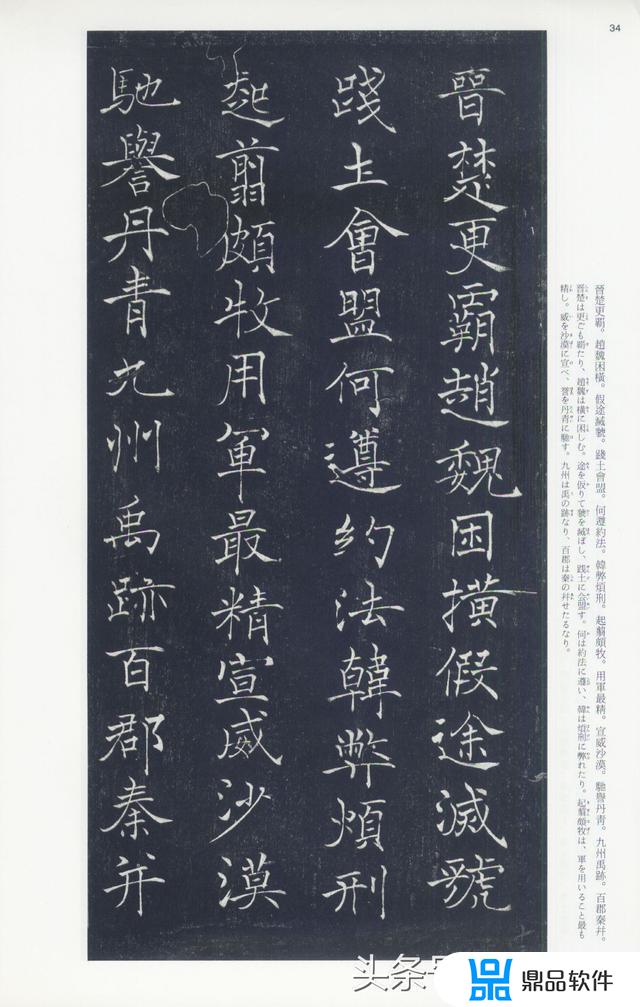 34
晉楚更霸趙魏困橫假途滅虢
踐土會盟何遵約法韓弊煩刑
起翦頗牧用軍最精宣威沙漠
馳譽丹青九州禹跡百郡秦并
晉楚更覇。趙魏困橫。假途滅虢。踐土會盟。何遵約法。韓弊煩刑。起翦頗牧。用軍最精。宣威沙漠。馳譽丹靑。九州禹跡。百郡秦幷。
晉楚は更ごも覇たり、趙魏は橫に困しむ。途を仮りて虢を滅ぼし、践土に会盟す。何は約法に遵い、韓は煩刑に弊れたり。起翦頗牧は、軍を用いること最も
精し。威を沙漠に宣べ、誉を丹青に馳す。九州は禹の跡なり、百郡は秦の幷せたるなり。
头条
鼎品软件